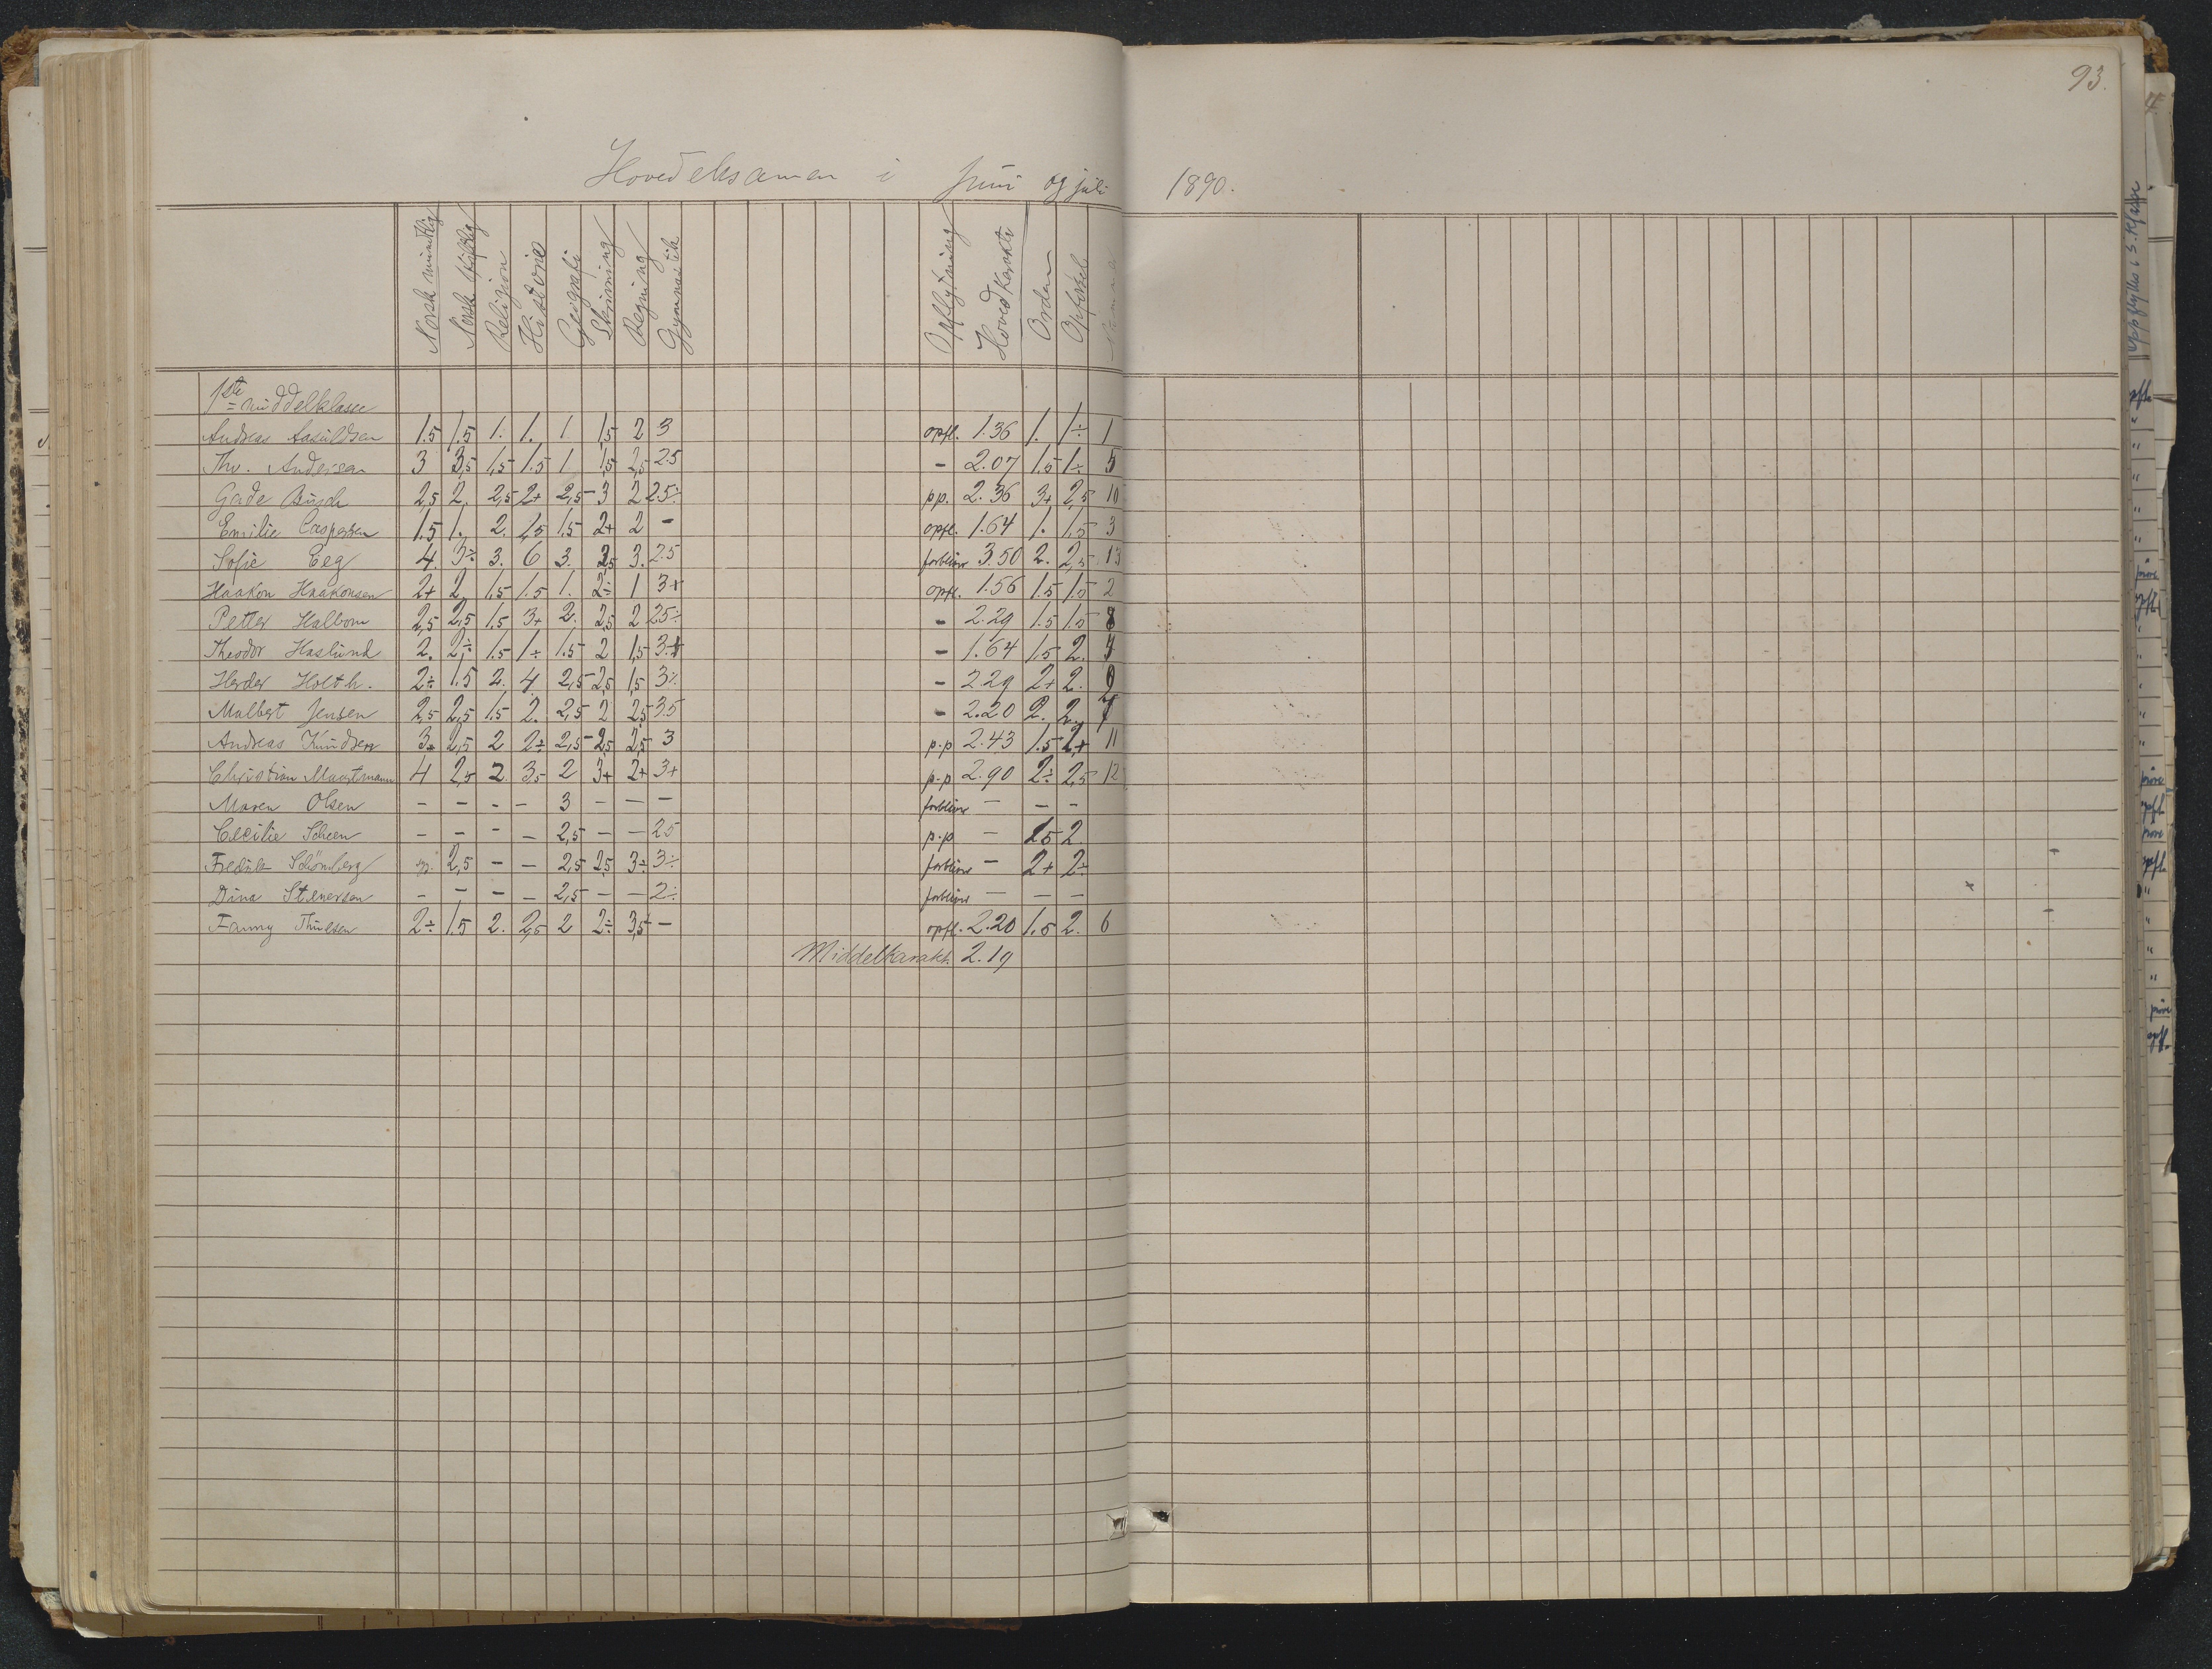 93.
Hovedeksamen i Juni og juli 1890.
Norsk mundtlig Norsk skriftlig Religion Historie Geografi Skrivning Regning Gymnastik Opflytning Hovedkarakt. Orden Opførsel
1ste middelklasse
Andreas Aasuldsen 1.5 1.5 1. 1. 1. 1,5 2 3 opfl. 1.36 1. 1÷ 1
Thv. Andersen 3 3,5 1,5 1.5 1 1,5 2,5 2.5 – 2.07 1.5 1÷ 5
Gade Busch 2,5 2. 2,5 2+ 2,5 3 2 2.5÷ pp. 2.36 3+ 2,5 10
Emilie Caspersen 1.5 1. 2. 1,5 1.5 2+ 2 – opfl. 1.64 1. 1.5 3
Sofie Eeg 4. 3÷ 3. 6 3. 2,5 3. 2.5 forbliver 3.50 2. 2,5 13
Haakon Haakonsen 2+ 2 1.5 1.5 1. 2÷ 1 3+ opfl. 1.56 1.5 1.5 2
Petter Halbom 2,5 2,5 1.5 3+ 2. 2,5 2 2.5÷ – 2.29 1.5 1.5 8
Theodor Haslund 2. 2÷ 1.5 1÷ 1.5 2 1,5 3.+ – 1.64 1.5 2. 4
Herder Holth. 2÷ 1.5 2. 4 2,5 2,5 1,5 3÷ – 2.29 2+ 2. 9
Malbert Jensen 2,5 2,5 1.5 2. 2,5 2 2,5 3.5 – 2.20 2. 2. 7
Andreas Knudsen 3÷ 2,5 2 2÷ 2,5 2,5 2,5 3 p.p 2.43 1.5 2+ 11
Christian Maastmann 4 2,5 2. 3,5 2 3+ 2+ 3+ p.p 2.90 2÷ 2,5 12
Maren Olsen – – – – 3 – – – forbliver – – –
Cecilie Scheen – – – – 2,5 – – 2.5 p.p – 1.5 2
Fredrik Schönberg 2,5 – – 2,5 2,5 3÷ 3÷ forbliver – 2+ 2÷
Dina Stenersen – – – – 2,5 – – 2÷ forbliver – – –
Fanny Thulsen 2÷ 1.5 2. 2,5 2 2÷ 3,5 – opfl. 2.20 1.5 2. 6
Middelkarakt. 2.19